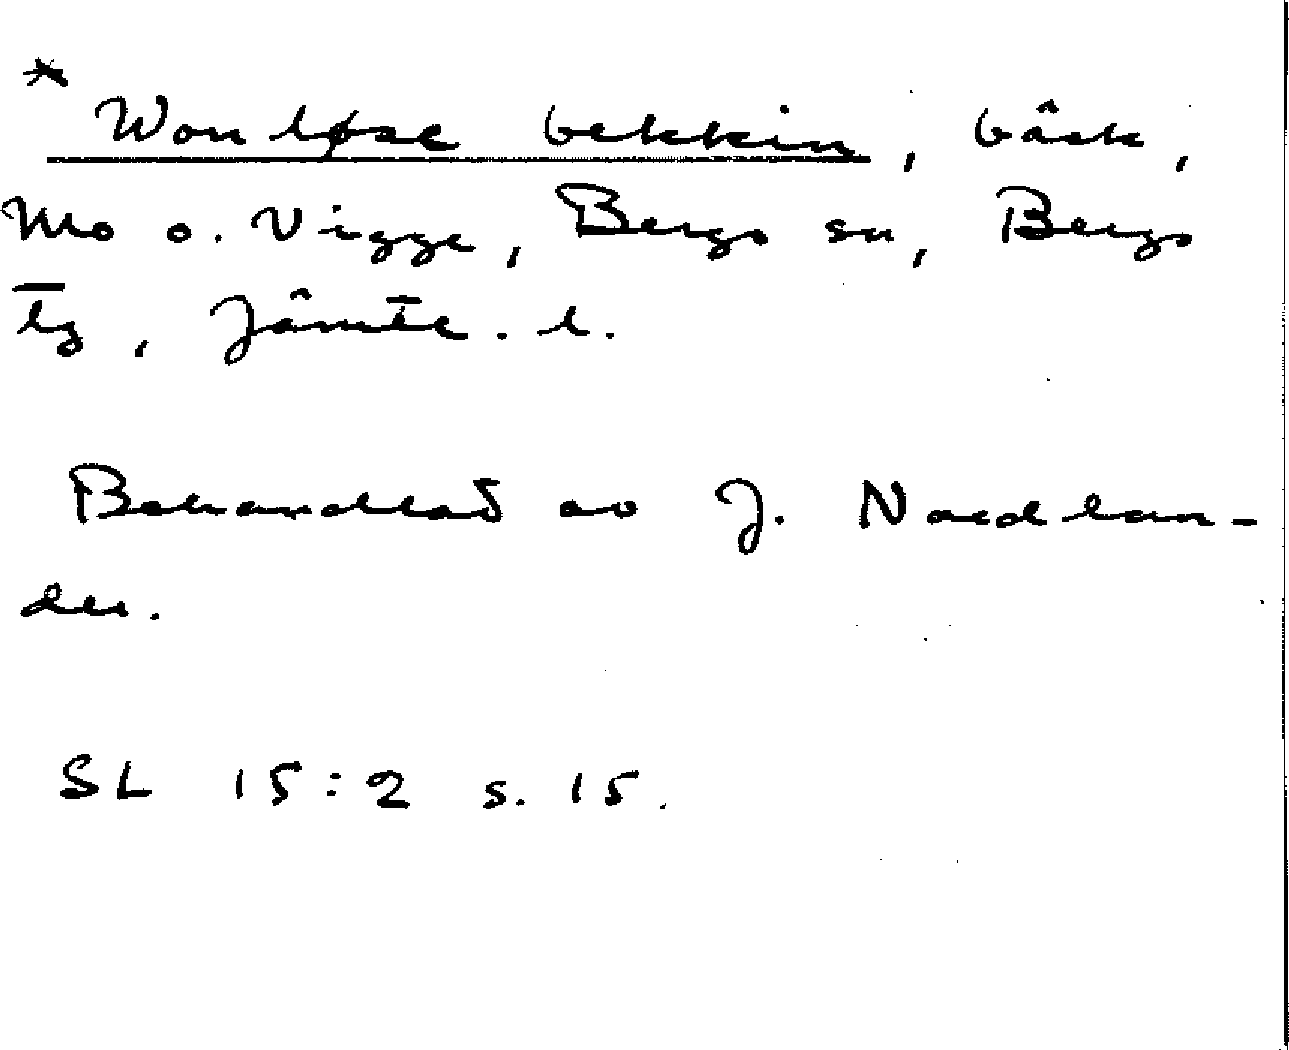 * Wonløse bekkin, bäck,
Mo o. Vigge, Bergs sn, Bergs
tg, Jämtl. l.
Behandlad av J. Nordlan-
der.
SL 15:2 s. 15.